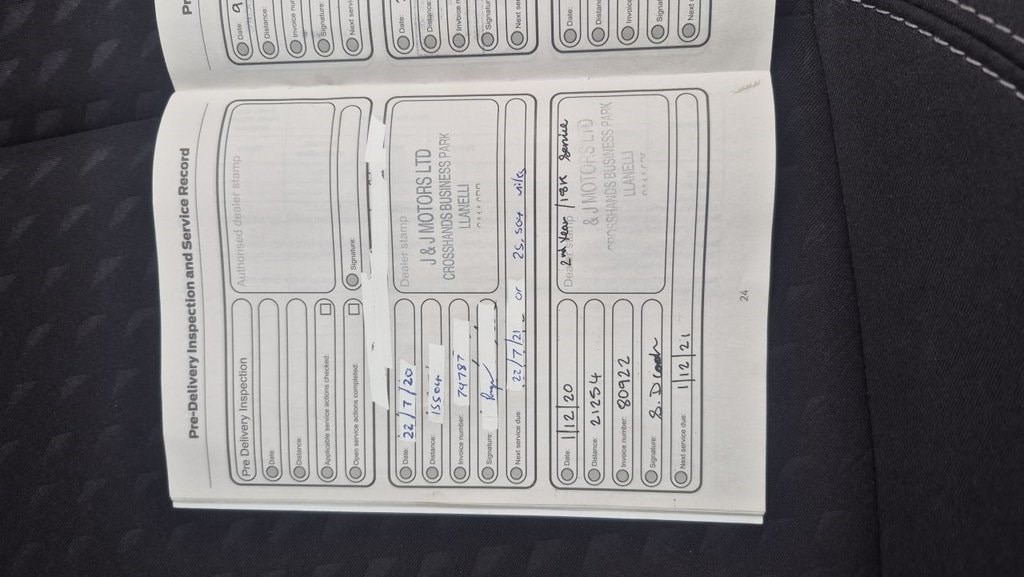 Pre-Delivery Inspection and Service Record
Pre Delivery Inspection
Authorised dealer stamp
Date:
Distance:
Applicable service actions checked:
Open service actions completed:
Signature:
Date: 22/7/20
Dealer stamp
Distance: 15504
J & J MOTORS LTD
CROSSHANDS BUSINESS PARK
LLANELLI
Invoice number: 74787
Signature:
Next service due: 22/7/21 or 25,504 miles
Date: 1/12/20
Dealer stamp
2nd Year / 18K Service
Distance: 21254
& J MOTORS LTD
CROSSHANDS BUSINESS PARK
LLANELLI
Invoice number: 80922
Signature:
Next service due: 1/12/21
24
Date: 9
Distance:
Invoice nu
Signature:
Next servi
Date:
Distance:
Invoice n
Signatur
Next se
Date:
Distan
Invoic
Signa
Next